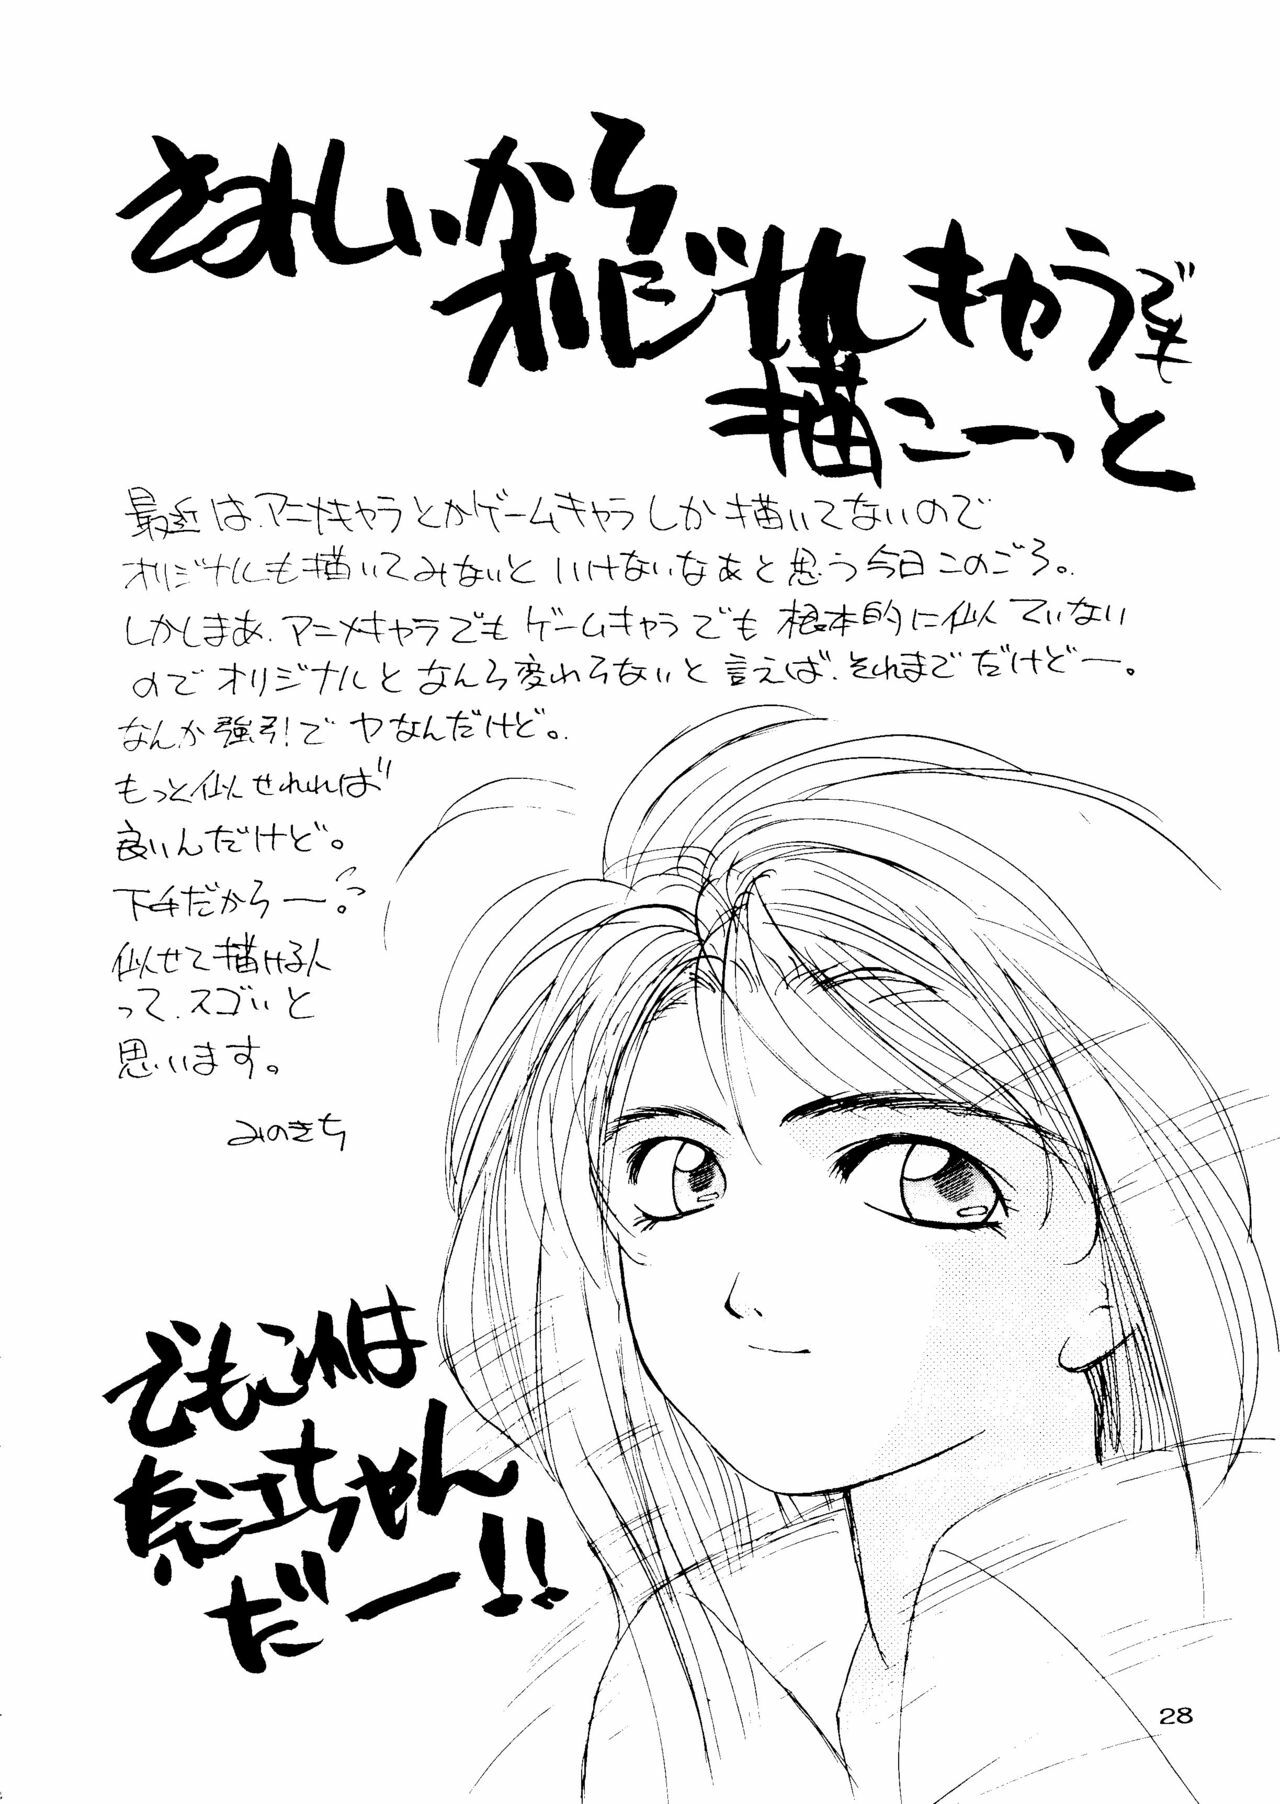 さみしいから
オリジナルキャラでも
描こーっと
最近は、アニメキャラとかゲームキャラしか描いてないので
オリジナルも描いてみないといけないなぁと思う今日このごろ。
しかしまあ、アニメキャラでもゲームキャラでも根本的に似ていない
のでオリジナルとなんら変わらないと言えば、それまでだけどー。
なんか強引!でヤなんだけど。
もっと似せれれば
良いんだけど。
下手だからー。
似せて描ける人
って、スゴいと
思います。
みのきち
でもこれは
ちゃん
だー!!
28